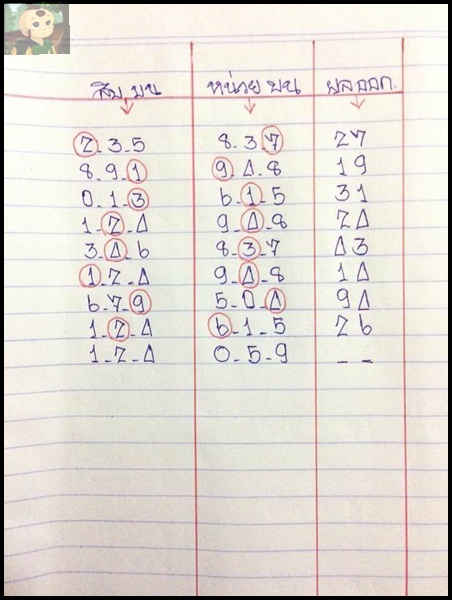 สิบ บน หน่วย บน ผลออก.
2.3.5 8.3.7 27
8.9.1 9.4.8 19
0.1.3 6.1.5 31
1.2.4 9.4.8 24
3.4.6 8.3.7 43
1.2.4 9.4.8 14
6.7.9 5.0.4 94
1.2.4 6.1.5 26
1.2.4 0.5.9 _ _